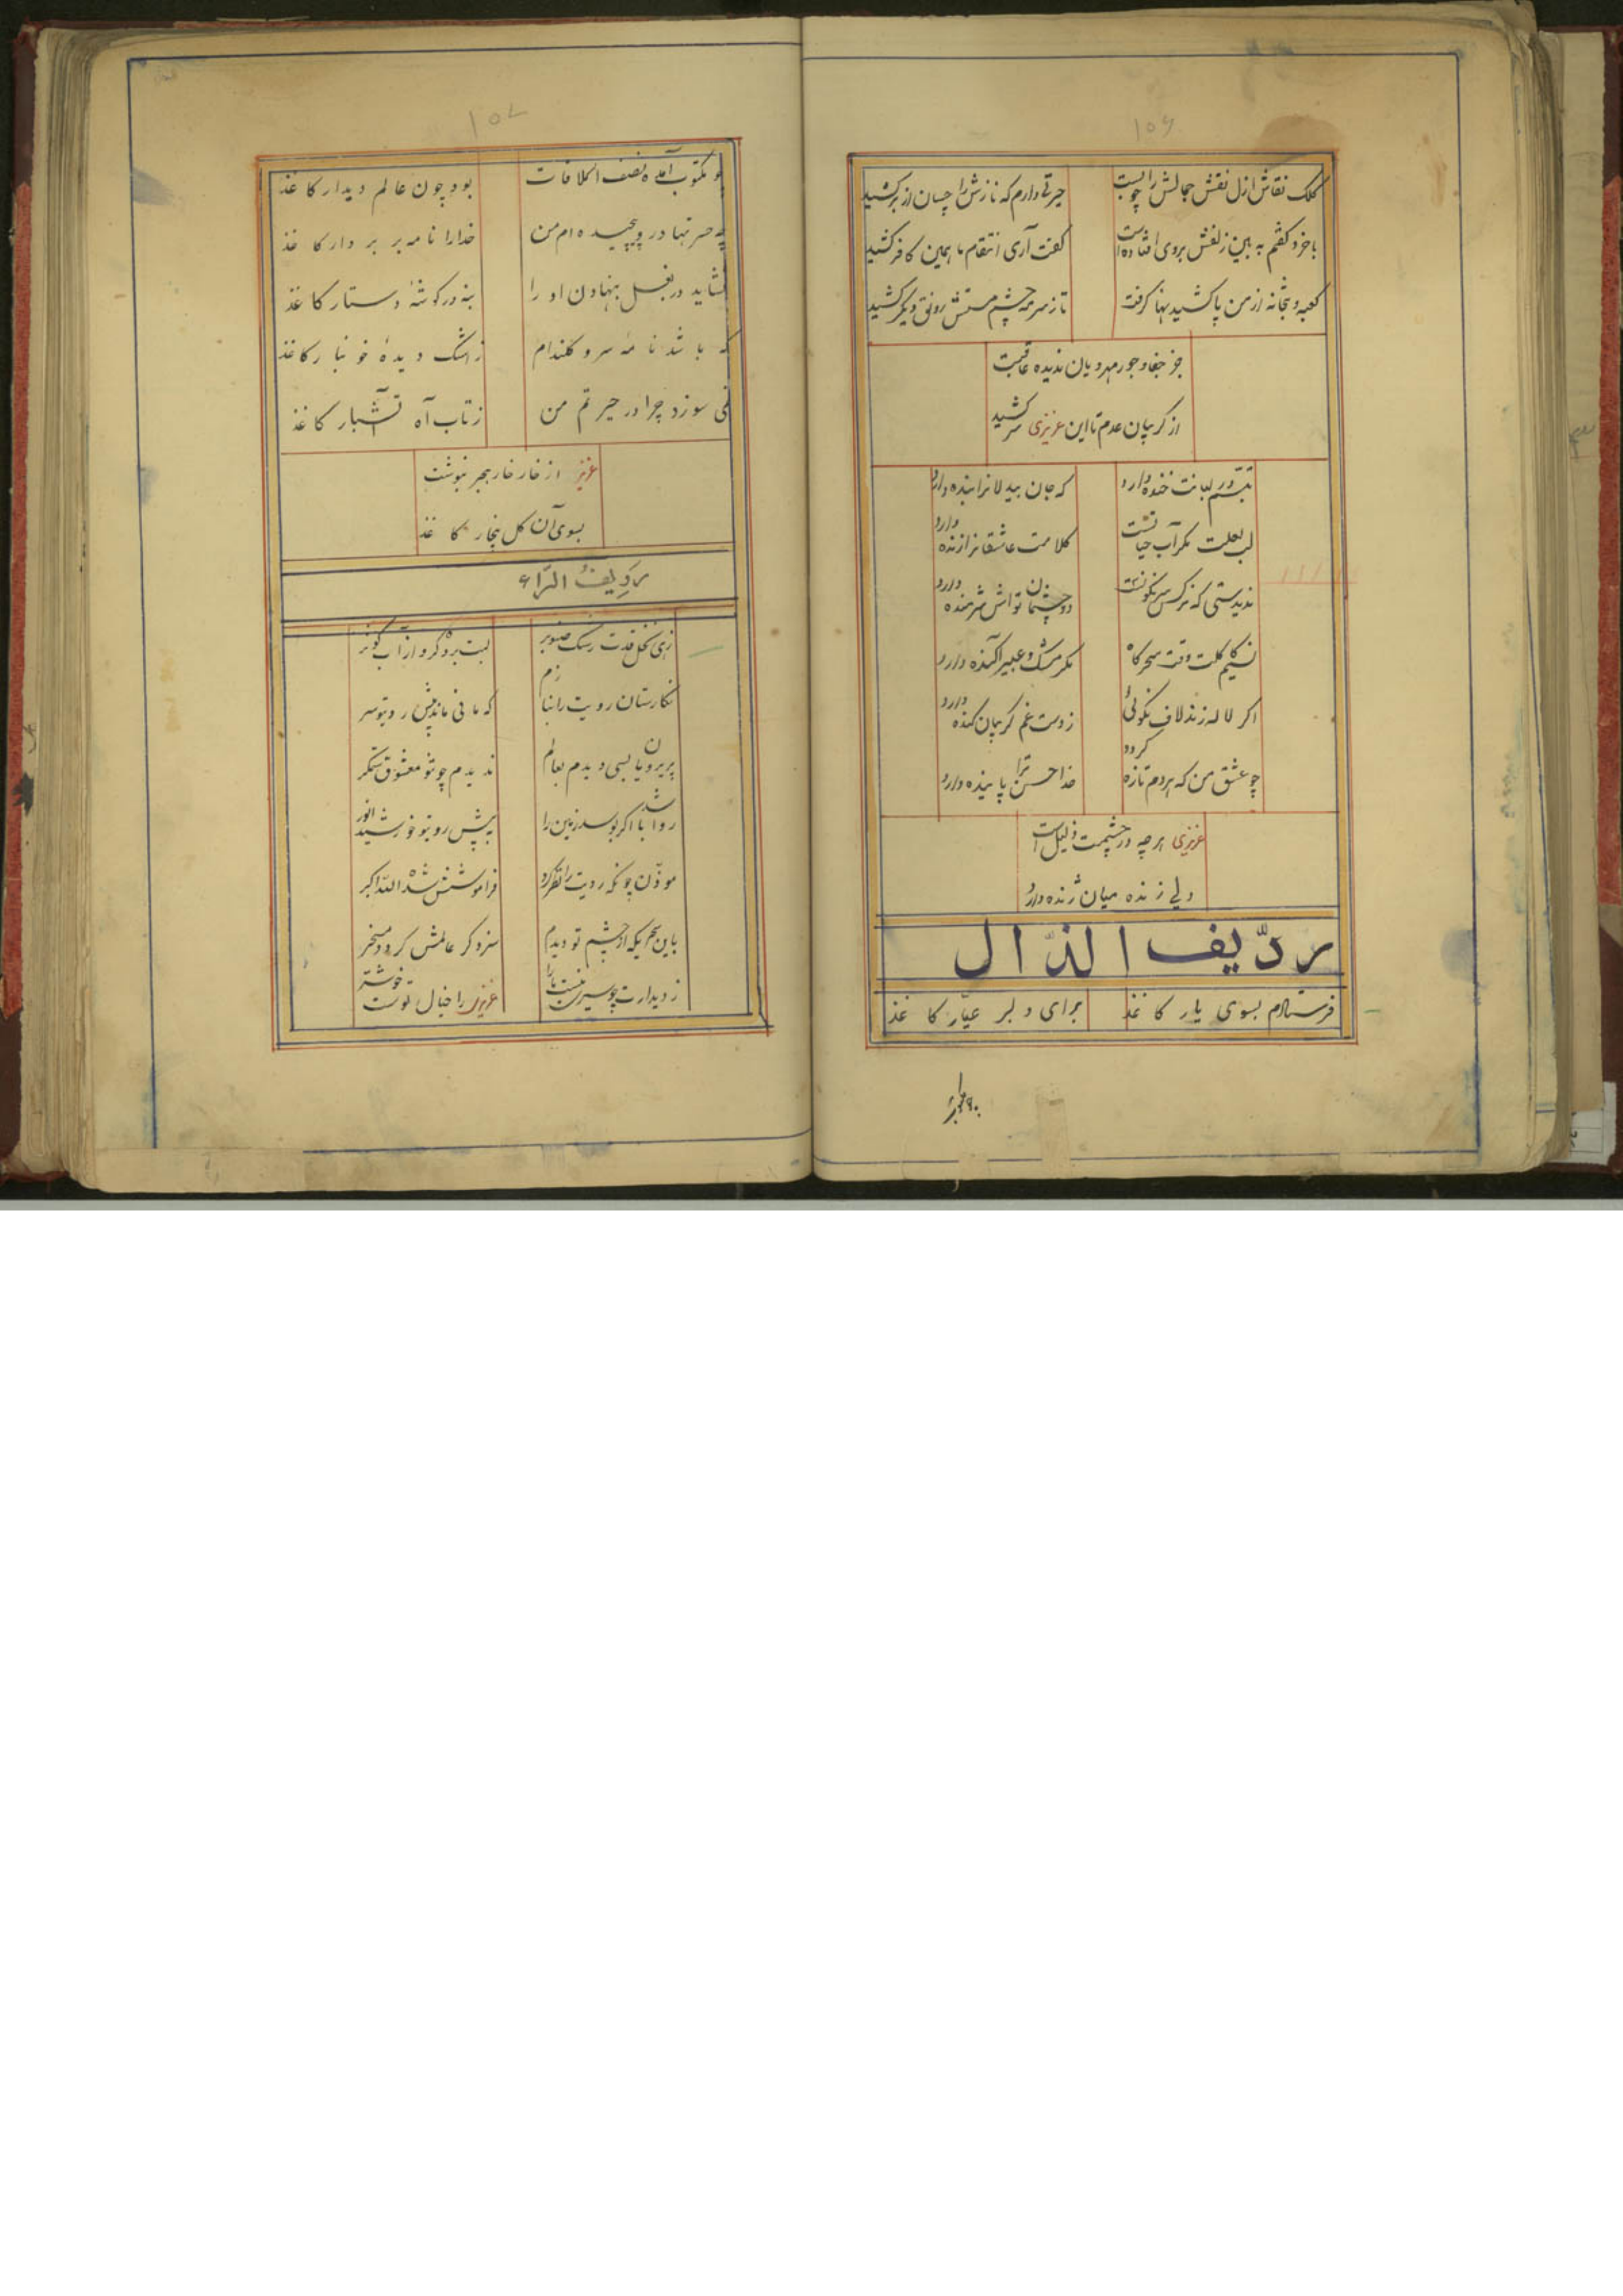 ۱۵۶
کلک نقاش ازل نقش جمالش را چو بست
حیرتی دارم که نازش را چسان از بر کشید
باخرد گفتم به بین زلفش بروی افتاده است
گفت آری انتقام ما همین کافر کشید
کعبه و بتخانه از من پا کشید بها گرفت
تا ز سرمه چشم مستش رونق دیگر کشید
جز جفا و جور مهرویان ندیده عاقبت
از گریبان عدم تا این عزیزی سر کشید
تبسم در لبانت خنده دارد
که جان بیدلانرا بنده دارد
لب لعلت مگر آب حیاتست
کلامت عاشقانرا زنده دارد
ندیدستی که نرگس سرنگونست
دو چشمان تواش شرمنده دارد
نسیم کاکلت وقت سحرگاه
مگر مشک و عبیر آکنده دارد
اگر لاله زند لاف نکوئی
ز دست غم گریبان کنده دارد
چو عشق من که هردم تازه گردد
خدا حسن ترا پاینده دارد
عزیزی هرچه در چشمت ذلیل است
ولی زنده میان ژنده دارد
ردیف الذال
فرستادم بسوی یار کاغذ
برای دلبر عیار کاغذ
۱۵۷
چو مکتوب آمده نصف الملاقات
بود چون عالم دیدار کاغذ
چه حسرتها در و پیچیده ام من
خدارا نامه بر بردار کاغذ
نشاید در بغل بنهادن او را
بنه در گوشهٔ دستار کاغذ
که باشد نامهٔ سرو گلندام
ز اشک دیدهٔ خونبار کاغذ
نمی سوزد چرا در حیرتم من
ز تاب آه آتشبار کاغذ
عزیز از خار خار هجر بنوشت
بسوی آن گل بیخار کاغذ
ردیف الراء
زهی نخل قدت رشک صنوبر
لبت برده گرو از آب کوثر
نگارستان رویت را بنازم
که مانی ماند پیش رو بتو سر
پریرویان بسی دیدم بعالم
ندیدم چو تو معشوق ستمگر
روا باشد اگر بوسد زمین را
به پیش رو بتو خورشید انور
موذن چونکه رویت را نظر کرد
فراموشش شد الله اکبر
باین سحریکه از چشم تو دیدم
سزد گر عالمش گردد مسخر
ز دیدارت چو سیری نیست مارا
عزیزی را خیال تست خوشتر